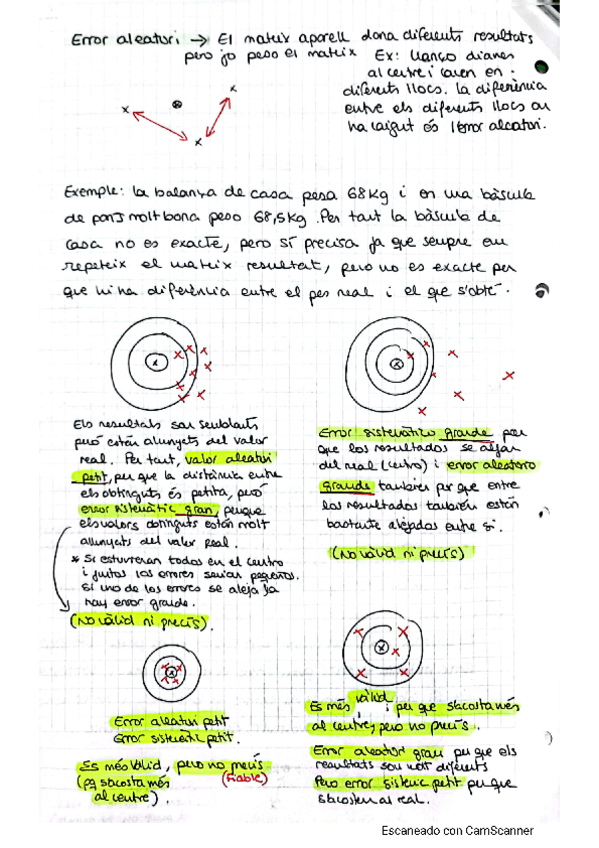 Error aleatori → El mateix aparell dona diferents resultats
però jo peso el mateix
Ex: llanço dianes
al centre i cauen en
diferents llocs. La diferència
entre els diferents llocs on
ha caigut és l'error aleatori.
Exemple: la balança de casa pesa 68kg i en una bàscula
de pons molt bona peso 68,5kg. Per tant la bàscula de
casa no es exacte, pero sí precisa ja que sempre em
repeteix el mateix resultat, pero no es exacte per
que hi ha diferència entre el pes real i el que s'obté.
Els resultats son semblants
però estàn allunyats del valor
real. Per tant, valor aleatori
petit, per que la distància entre
els obtinguts és petita, però
error sistemàtic gran, perque
els valors obtinguts estàn molt
allunyats del valor real.
* Si estuvieran todas en el centro
i juntas los errores serian pequeños.
Si uno de los errores se aleja ya
hay error grande.
(No vàlid ni precís).
Error sistemático grande por
que los resultados se alejan
del real (centro) i error aleatorio
grande tambien por que entre
los resultados también están
bastante alejados entre si.
(No vàlid ni precís)
Error aleatori petit
Error sistemàtic petit.
Es més vàlid, pero no precís
(pq s'acosta més (fiable)
al centre).
Es més vàlid i per que s'acosta més
al centre, pero no precís.
Error aleatori gran per que els
resultats son molt diferents
Pero error sistemic petit per que
s'acosten al real.
Escaneado con CamScanner